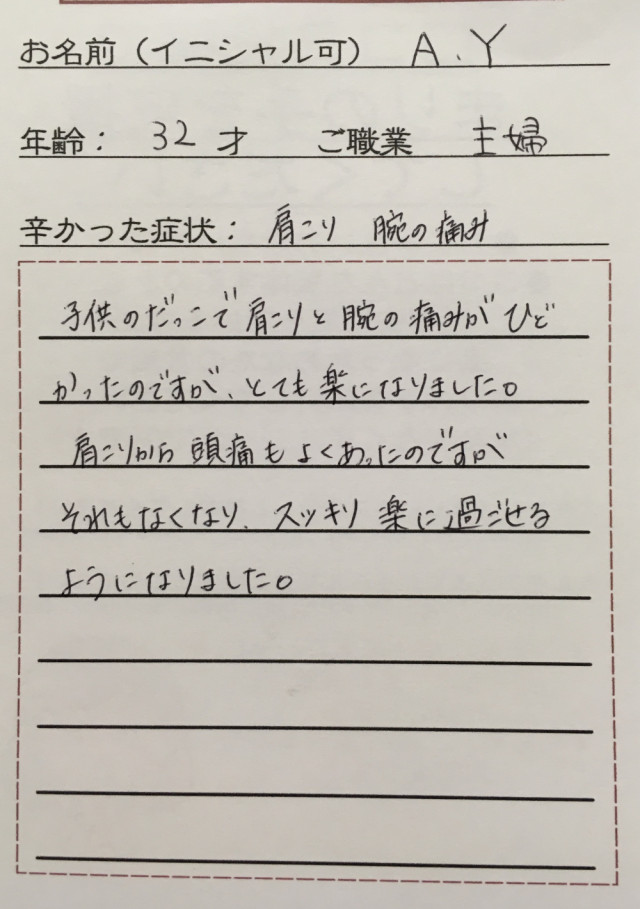 お名前（イニシャル可） A.Y
年齢： 32才 ご職業 主婦
辛かった症状： 肩こり 腕の痛み
子供のだっこで肩こりと腕の痛みがひど
かったのですが、とても楽になりました。
肩こりから頭痛もよくあったのですが
それもなくなり、スッキリ楽に過ごせる
ようになりました。